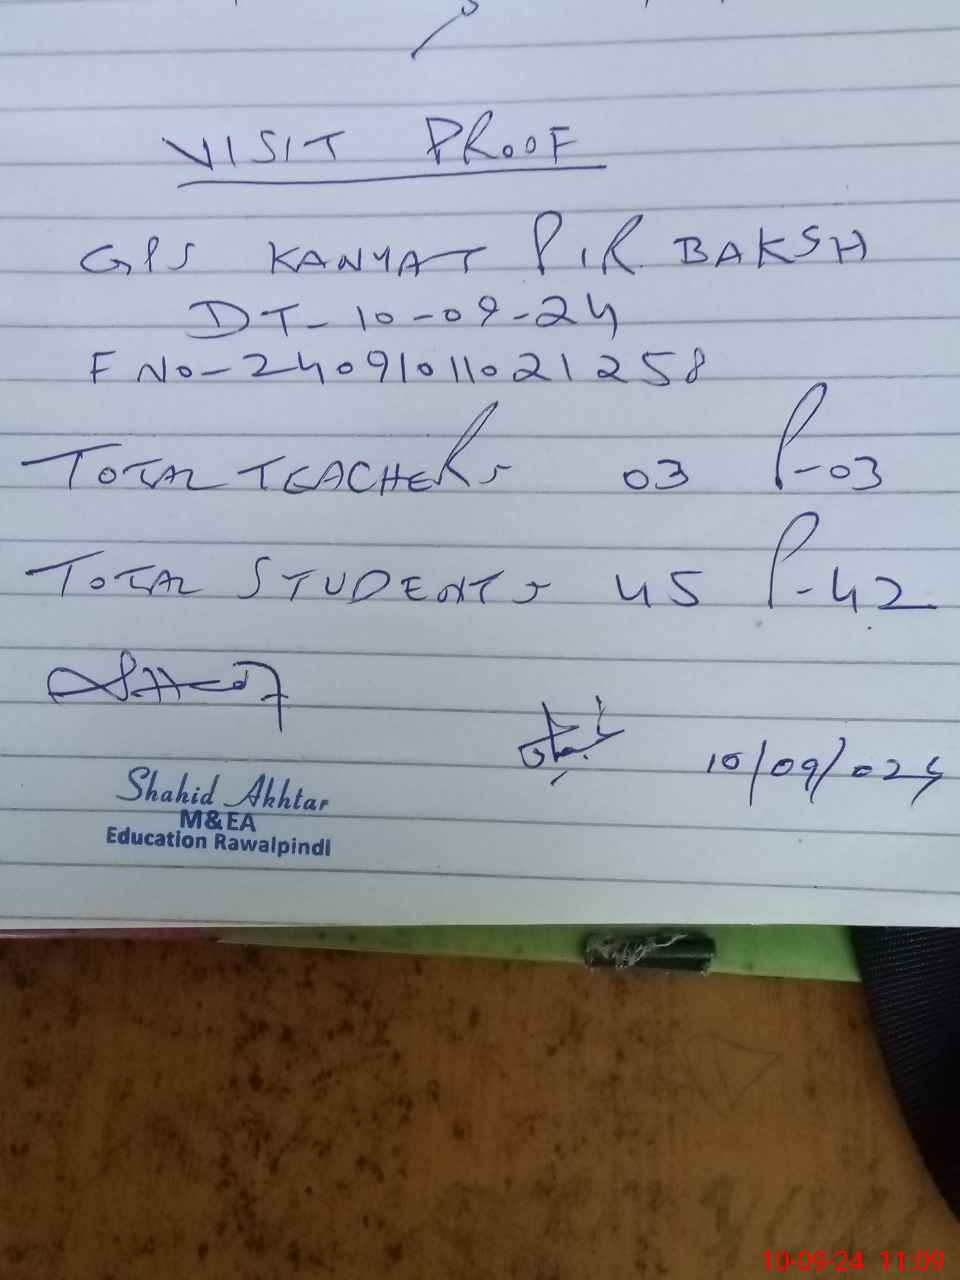 VISIT PROOF
GPS KANYAT PIR BAKSH
DT- 10-09-24
F NO- 24091011021258
TOTAL TEACHERS 03 P-03
TOTAL STUDENTS 45 P-42
10/09/024
Shahid Akhtar
M&EA
Education Rawalpindi
10-09-24 11:09